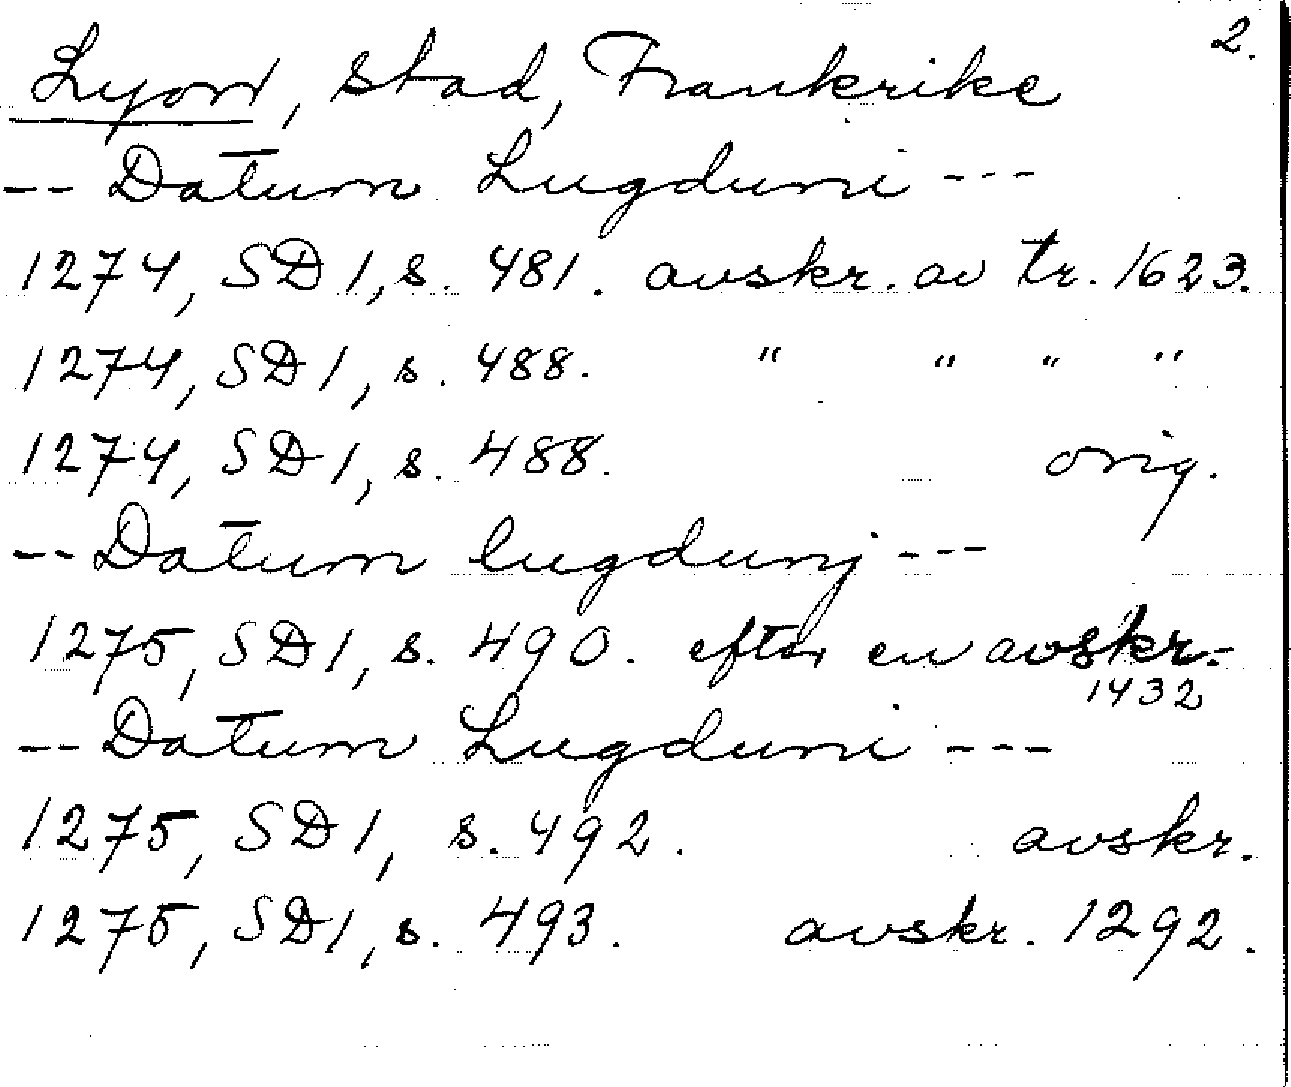 2.
Lyon, stad, Frankrike
-- Datum Lugduni ---
1274, SD 1, s. 481. avskr. av tr. 1623.
1274, SD 1, s. 488. " " " "
1274, SD 1, s. 488. orig.
-- Datum lugdunj ---
1275, SD 1, s. 490. efter en avskr.
1432
-- Datum Lugduni ---
1275, SD 1, s. 492. avskr.
1275, SD 1, s. 493. avskr. 1292.